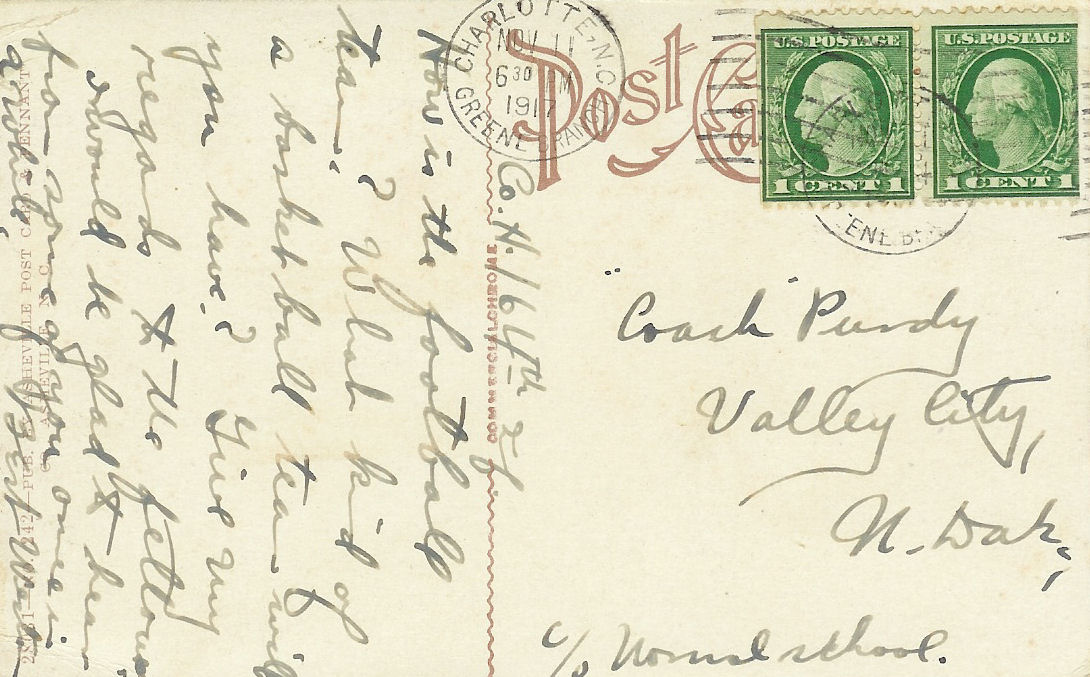 How is the football
team? What kid of
a basket ball team will
you have? Give my
regards to the fellows
would be glad to hear
from some of you once in
awhile,
Co. H. 164th Inf.
CHARLOTTE, N.C.
NOV 11
6 30 PM
1917
GREENE BRANCH
Post Ca
U.S. POSTAGE
1 CENT 1
U.S. POSTAGE
1 CENT 1
"Coach Purdy
Valley City,
N. Dak.,
c/o Normal school.
COMMERCIALCHROME
PUB. BY ASHEVILLE POST CARD & PENNANT
CO., ASHEVILLE, N. C.